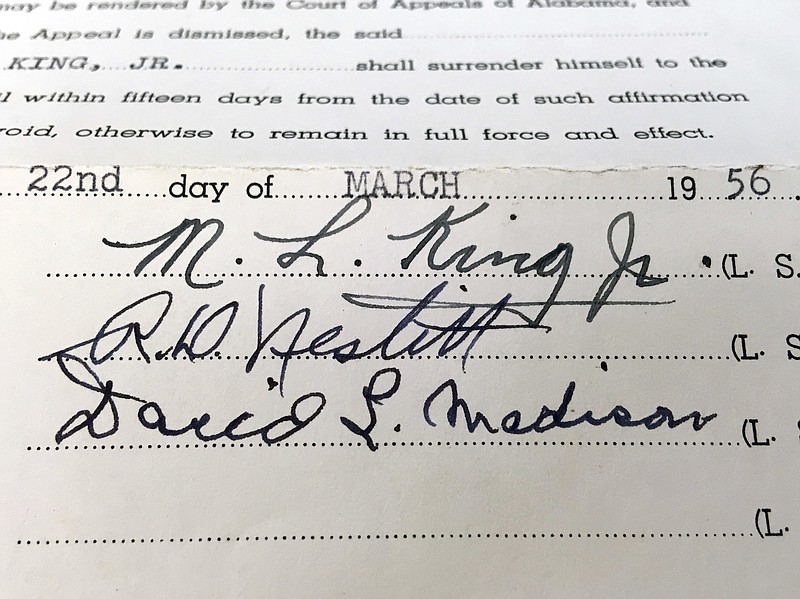 may be rendered by the Court of Appeals of Alabama, and
he Appeal is dismissed, the said
KING, JR. shall surrender himself to the
l within fifteen days from the date of such affirmation
roid, otherwise to remain in full force and effect.
22nd day of MARCH 19 56 .
M. L. King Jr. (L. S.
R.D. Nesbitt (L. S
David L. Madison (L. S
(L.